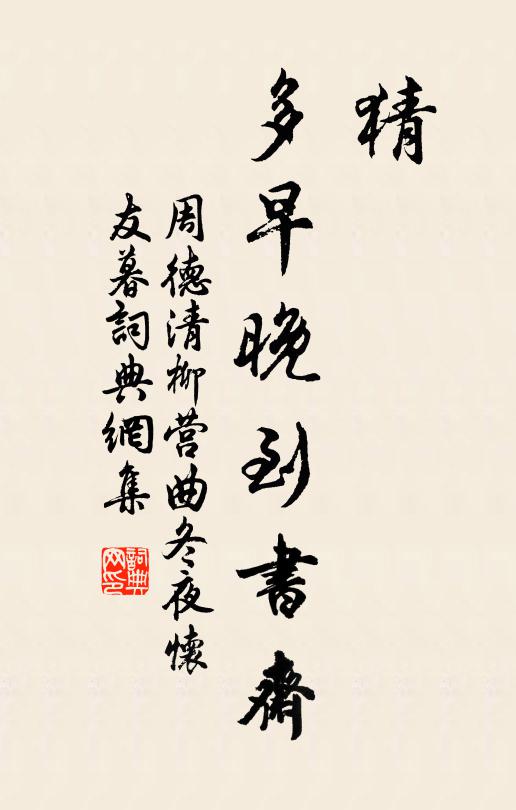 猜
多早晚到書齋
周德清柳营曲冬夜懷
友暮詞典網集
詞典网印